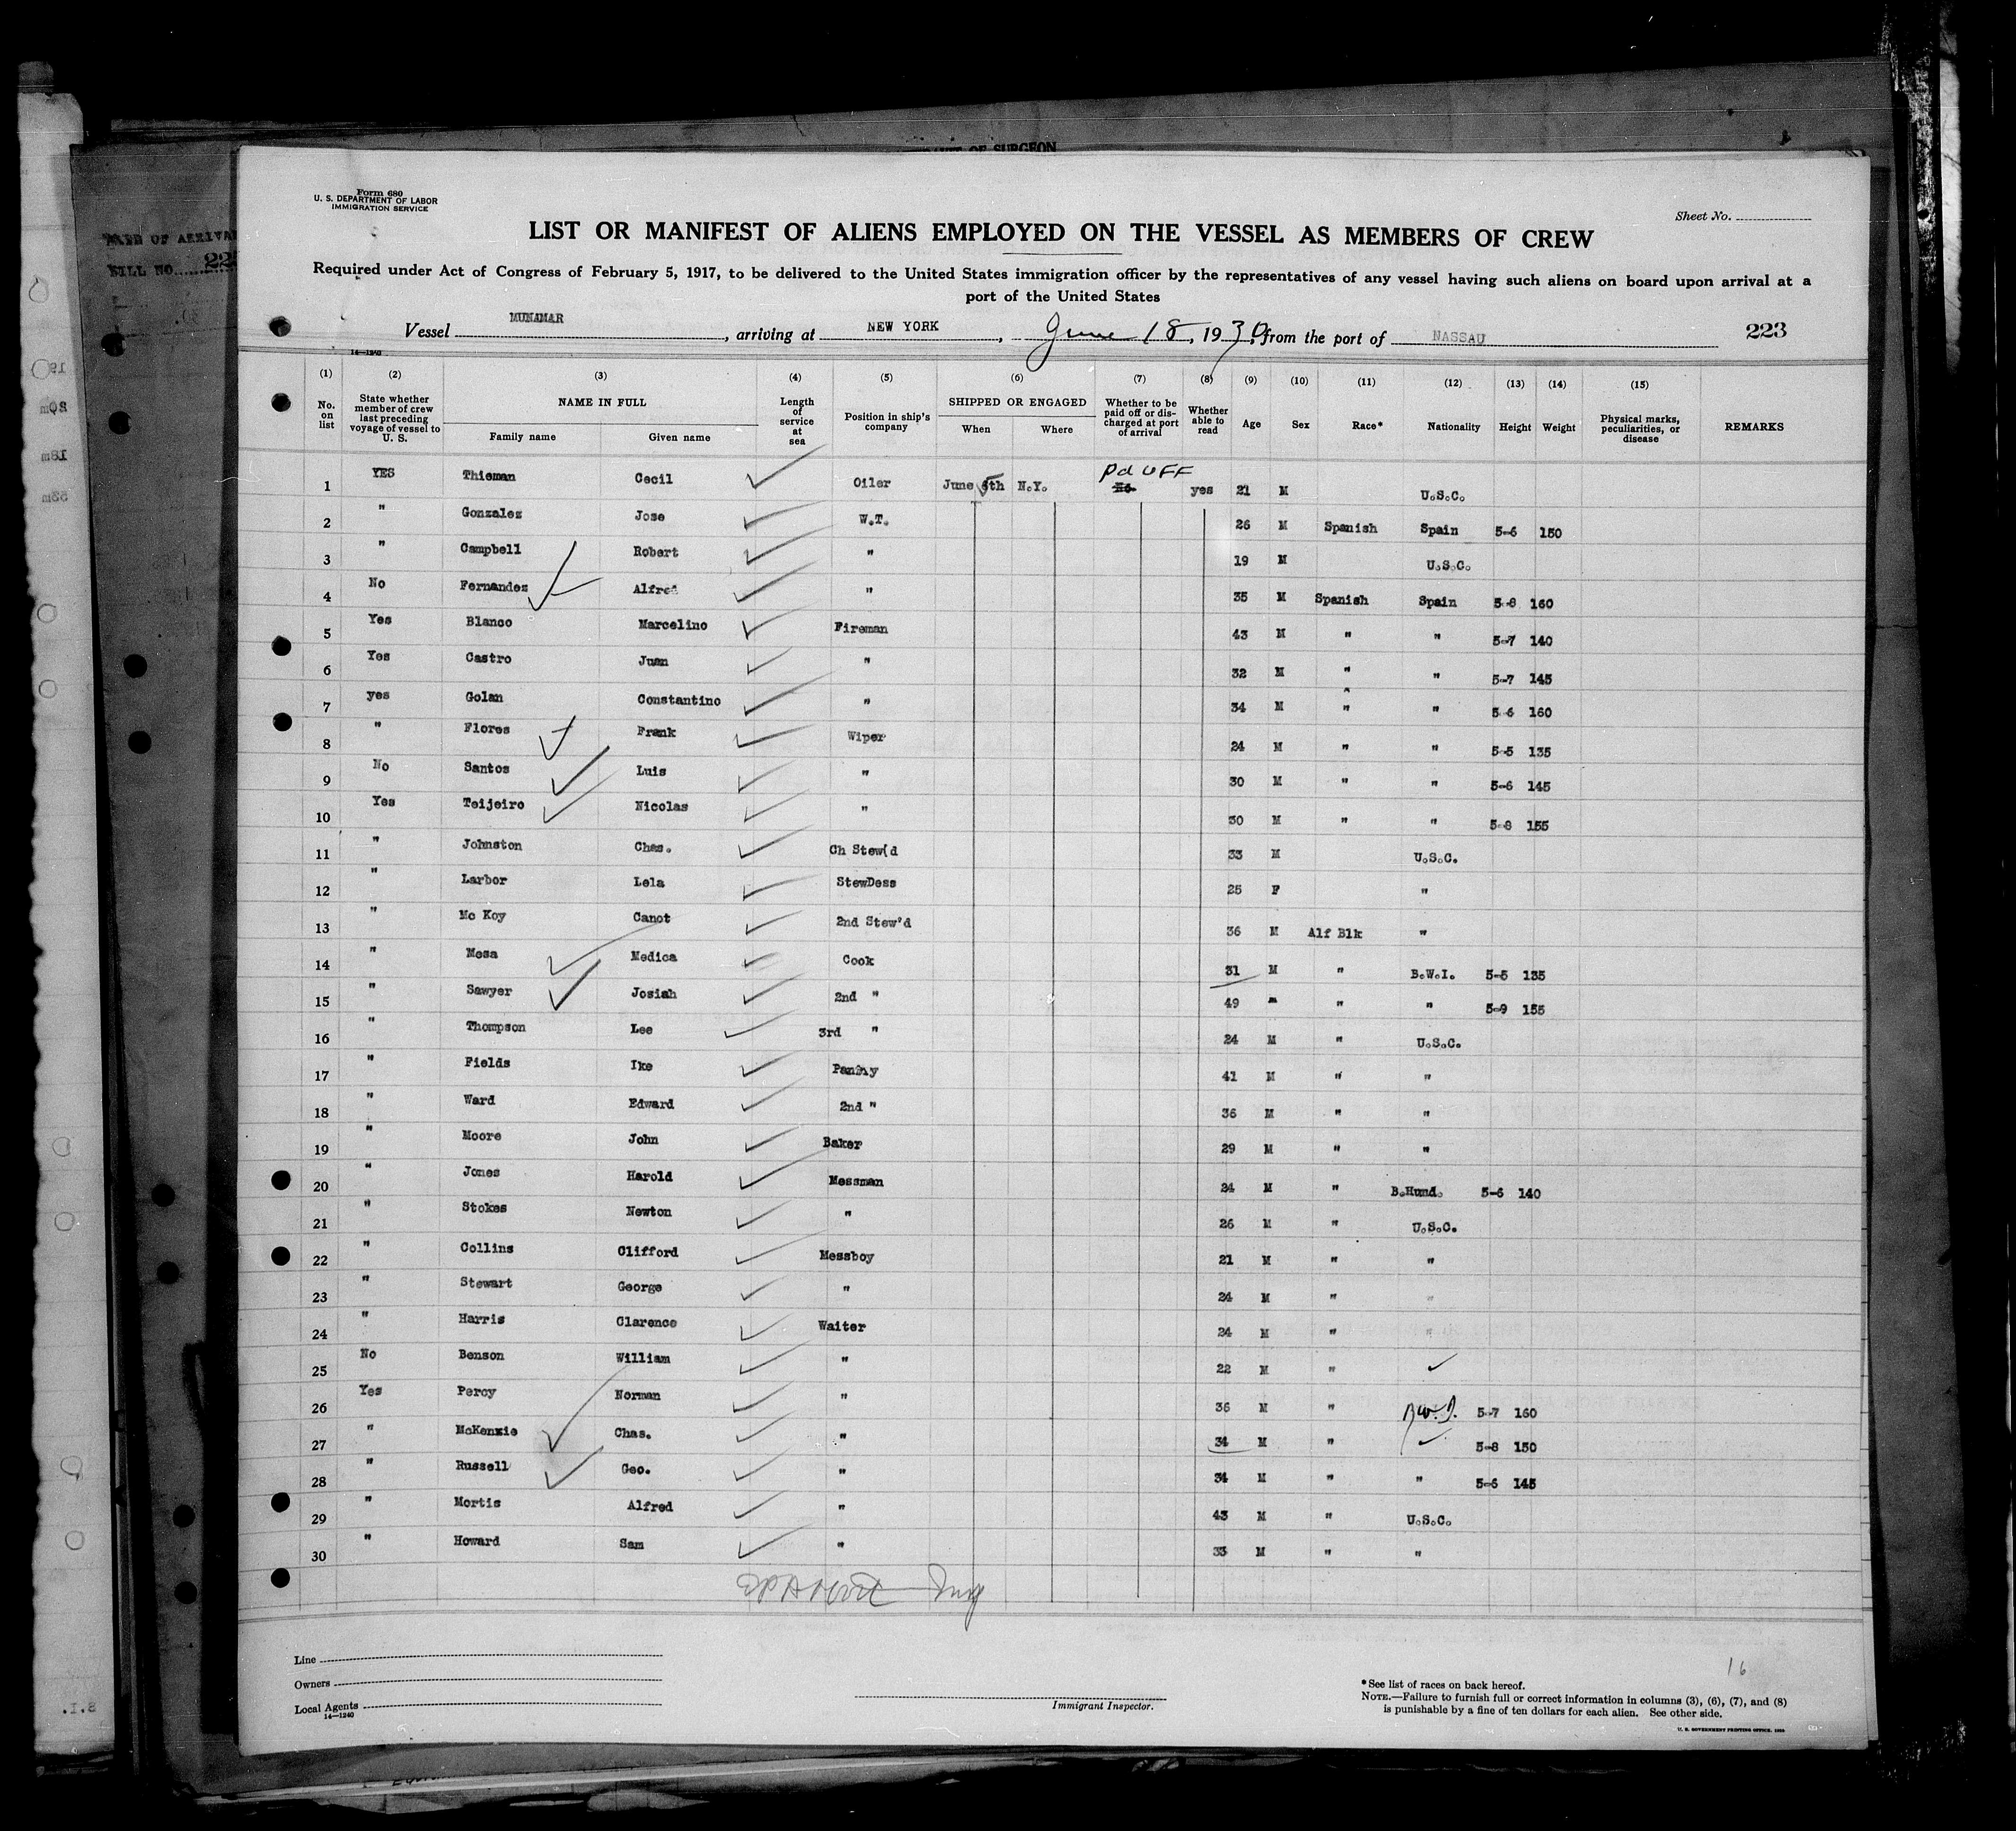 OF SURGEON
DATE OF ARRIVAL
BILL NO. 223
Form 680
U. S. DEPARTMENT OF LABOR
IMMIGRATION SERVICE
Sheet No.
LIST OR MANIFEST OF ALIENS EMPLOYED ON THE VESSEL AS MEMBERS OF CREW
Required under Act of Congress of February 5, 1917, to be delivered to the United States immigration officer by the representatives of any vessel having such aliens on board upon arrival at a
port of the United States
Vessel MUNAMAR, arriving at NEW YORK, June 18, 1930, from the port of NASSAU 223
14—1240
(1) (2) (3) (4) (5) (6) (7) (8) (9) (10) (11) (12) (13) (14) (15)
No. on list State whether member of crew last preceding voyage of vessel to U. S. NAME IN FULL Family name Given name Length of service at sea Position in ship's company SHIPPED OR ENGAGED When Where Whether to be paid off or discharged at port of arrival Whether able to read Age Sex Race* Nationality Height Weight Physical marks, peculiarities, or disease REMARKS
1 YES Thieman Cecil Oiler June 5th N.Y. Pd OFF No yes 21 M U.S.C.
2 " Gonzalez Jose W.T. 26 M Spanish Spain 5-6 150
3 " Campbell Robert " 19 M U.S.C.
4 No Fernandez Alfred " 35 M Spanish Spain 5-8 160
5 Yes Blanco Marcelino Fireman 43 M " " 5-7 140
6 Yes Castro Juan " 32 M " " 5-7 145
7 yes Golan Constantino " 34 M " " 5-6 160
8 " Flores Frank Wiper 24 M " " 5-5 135
9 No Santos Luis " 30 M " " 5-6 145
10 Yes Teijeiro Nicolas " 30 M " " 5-8 155
11 " Johnston Chas. Ch Stew(d 33 M U.S.C.
12 " Larbor Lela StewDess 25 F "
13 " Mc Koy Canot 2nd Stew'd 36 M Alf Blk "
14 " Mesa Medica Cook 31 M " B.W.I. 5-5 135
15 " Sawyer Josiah 2nd " 49 " " " 5-9 155
16 " Thompson Lee 3rd " 24 M " U.S.C.
17 " Fields Ike 41 M " "
18 " Ward Edward 2nd " 36 M " "
19 " Moore John Baker 29 M " "
20 " Jones Harold Messman 24 M " B.Hund. 5-6 140
21 " Stokes Newton " 26 M " U.S.C.
22 " Collins Clifford Messboy 21 M " "
23 " Stewart George " 24 M " "
24 " Harris Clarence Waiter 24 M " "
25 No Benson William " 22 M "
26 Yes Percy Norman " 36 M " B.W.I. 5-7 160
27 " McKenzie Chas. " 34 M " 5-8 150
28 " Russell Geo. " 34 M " " 5-6 145
29 " Mortis Alfred " 43 M " U.S.C.
30 " Howard Sam " 33 M " "
Line
Owners
Local Agents
14—1240
Immigrant Inspector.
16
*See list of races on back hereof.
NOTE.—Failure to furnish full or correct information in columns (3), (6), (7), and (8)
is punishable by a fine of ten dollars for each alien. See other side.
U. S. GOVERNMENT PRINTING OFFICE.